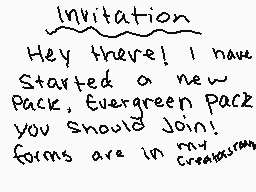 Invitation
Hey there! I have
started a new
pack, Evergreen pack
you should join!
forms are in my
creators room